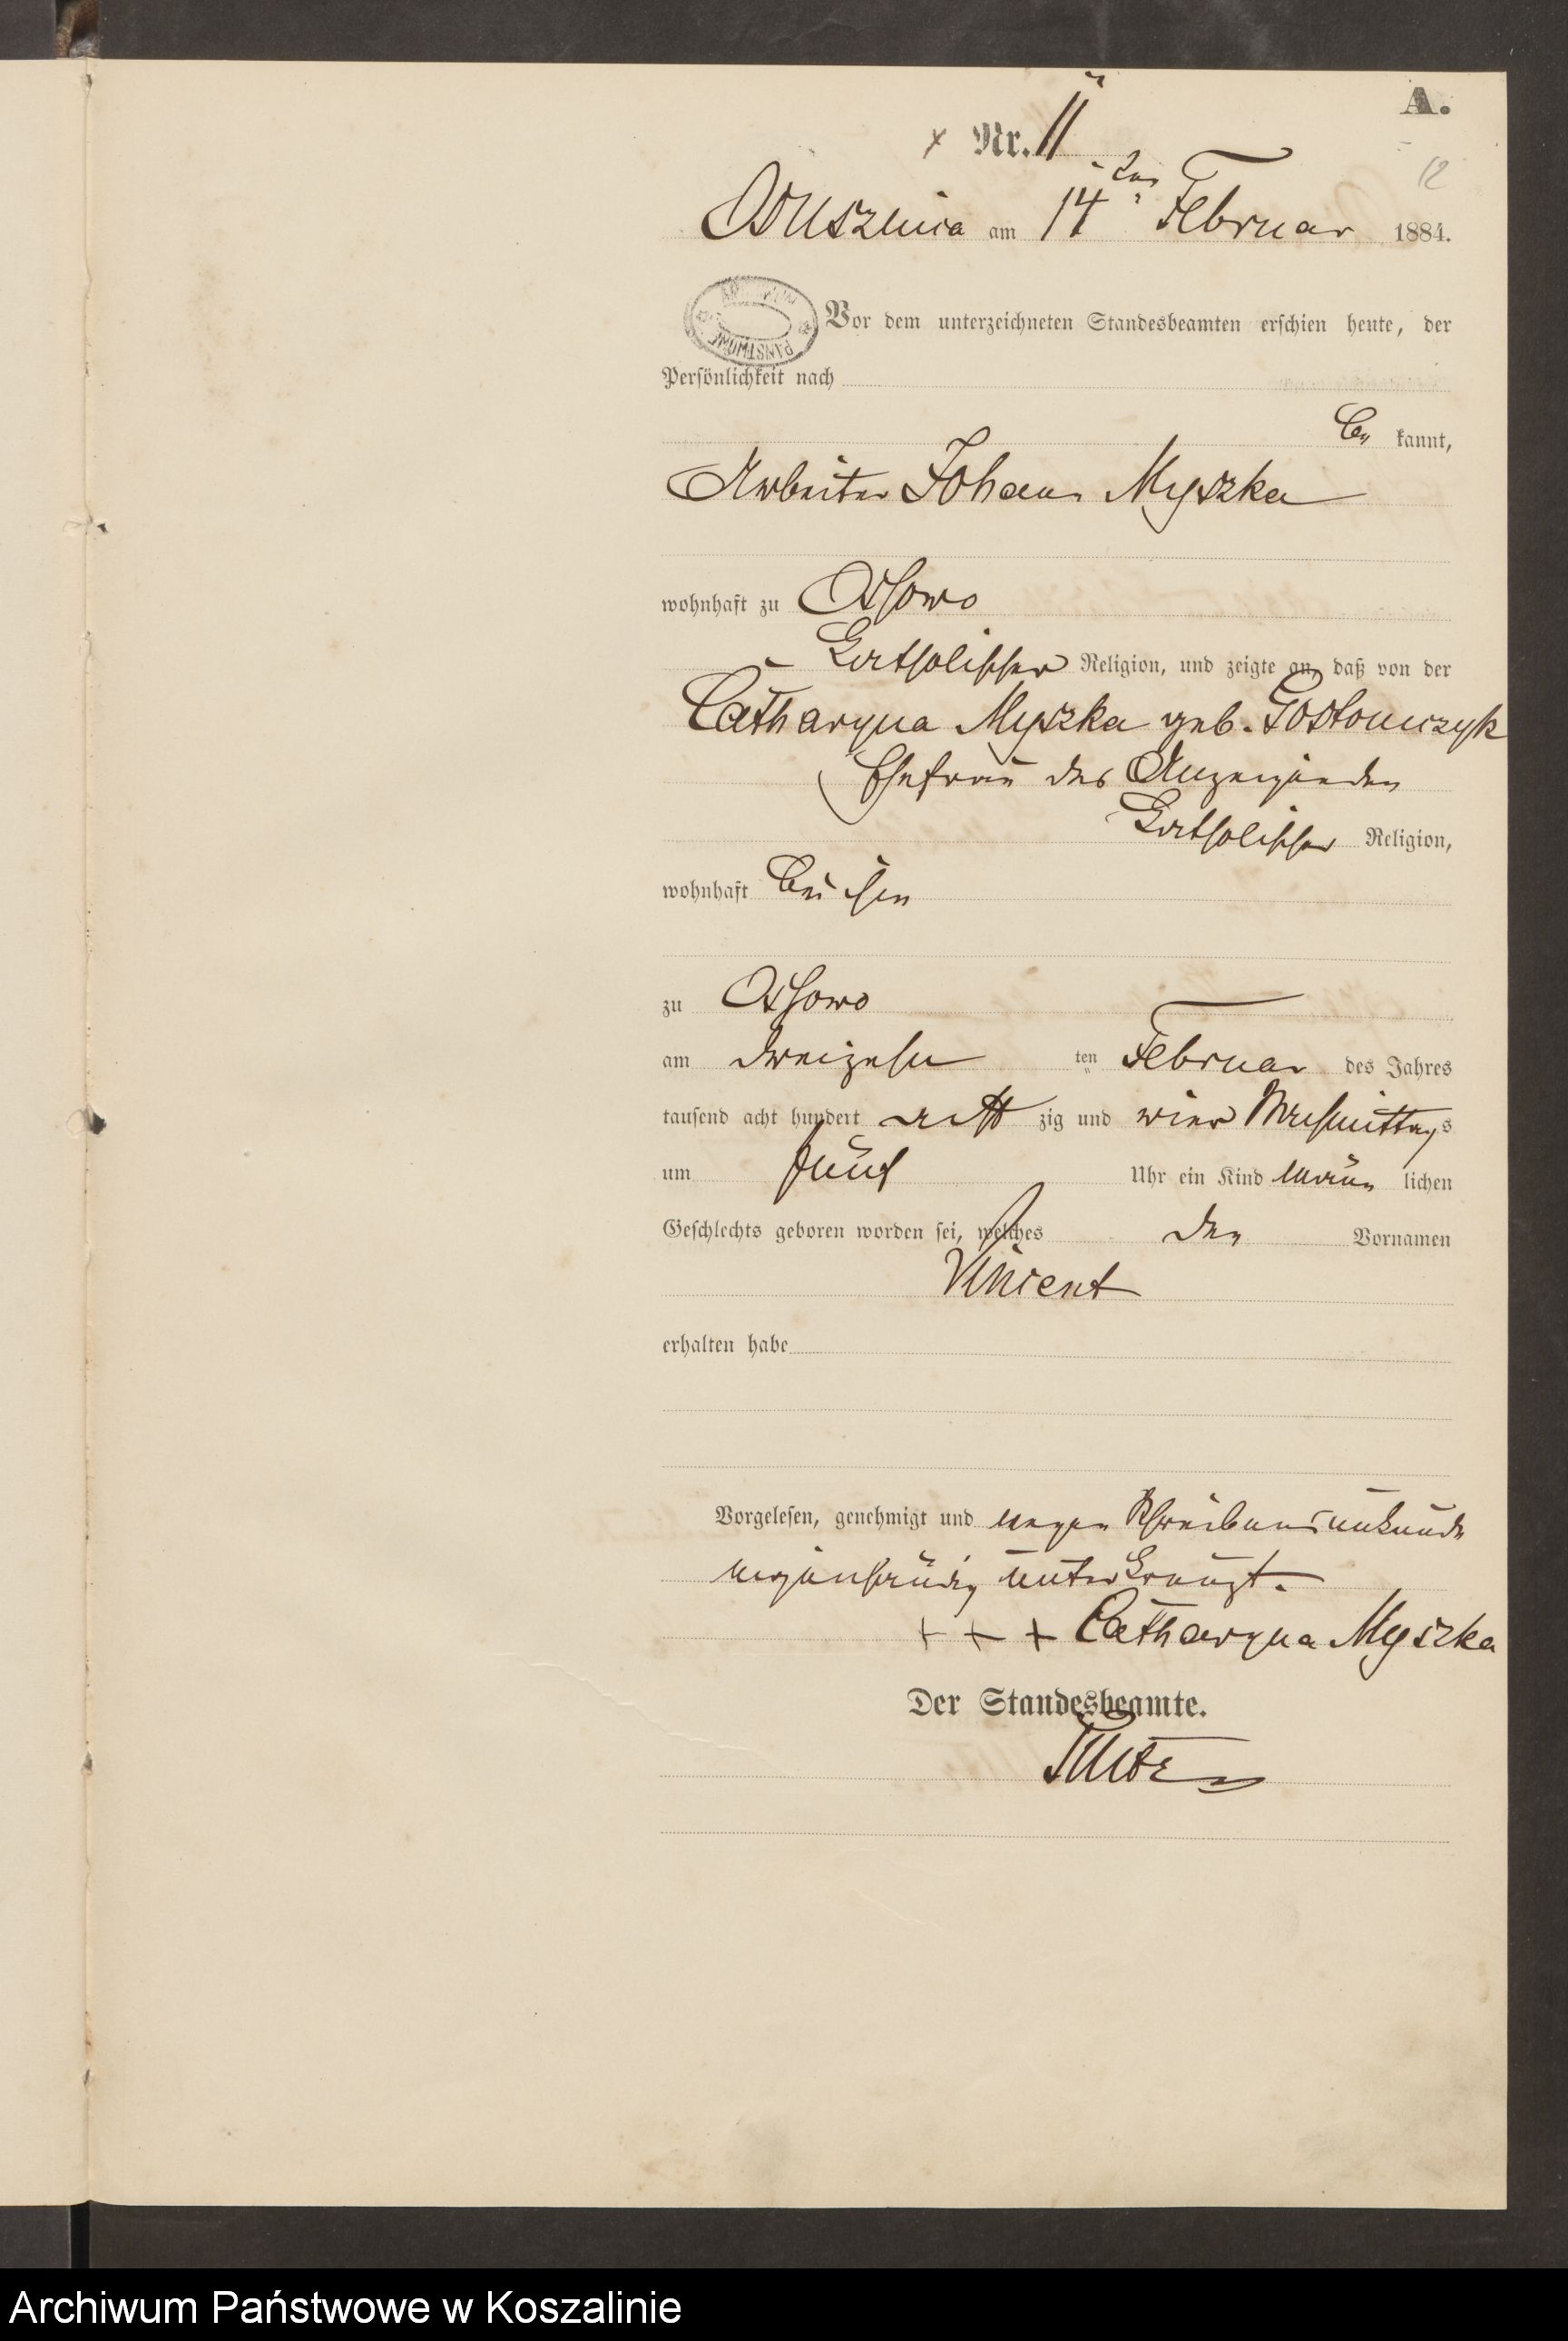 A.
Nr. 11
12
Osusznica am 14ten Februar 1884.
Vor dem unterzeichneten Standesbeamten erschien heute, der
Persönlichkeit nach
be kannt,
Arbeiter Johann Myszka
wohnhaft zu Ossowo
Katholischer Religion, und zeigte an, daß von der
Catharyna Myszka geb. Gostomczyk
Ehefrau des Anzeigenden
Katholischer Religion,
wohnhaft bei ihm
zu Ossowo
am dreizehn ten Februar des Jahres
tausend acht hundert acht zig und vier Nachmittags
um fünf Uhr ein Kind männ lichen
Geschlechts geboren worden sei, welches den Vornamen
Vincent
erhalten habe
Vorgelesen, genehmigt und wegen Schreibensunkunde
eigenhändig unterkreuzt.
+ + + Catharyna Myszka
Der Standesbeamte.
ARCHIWUM PAŃSTWOWE
Archiwum Państwowe w Koszalinie